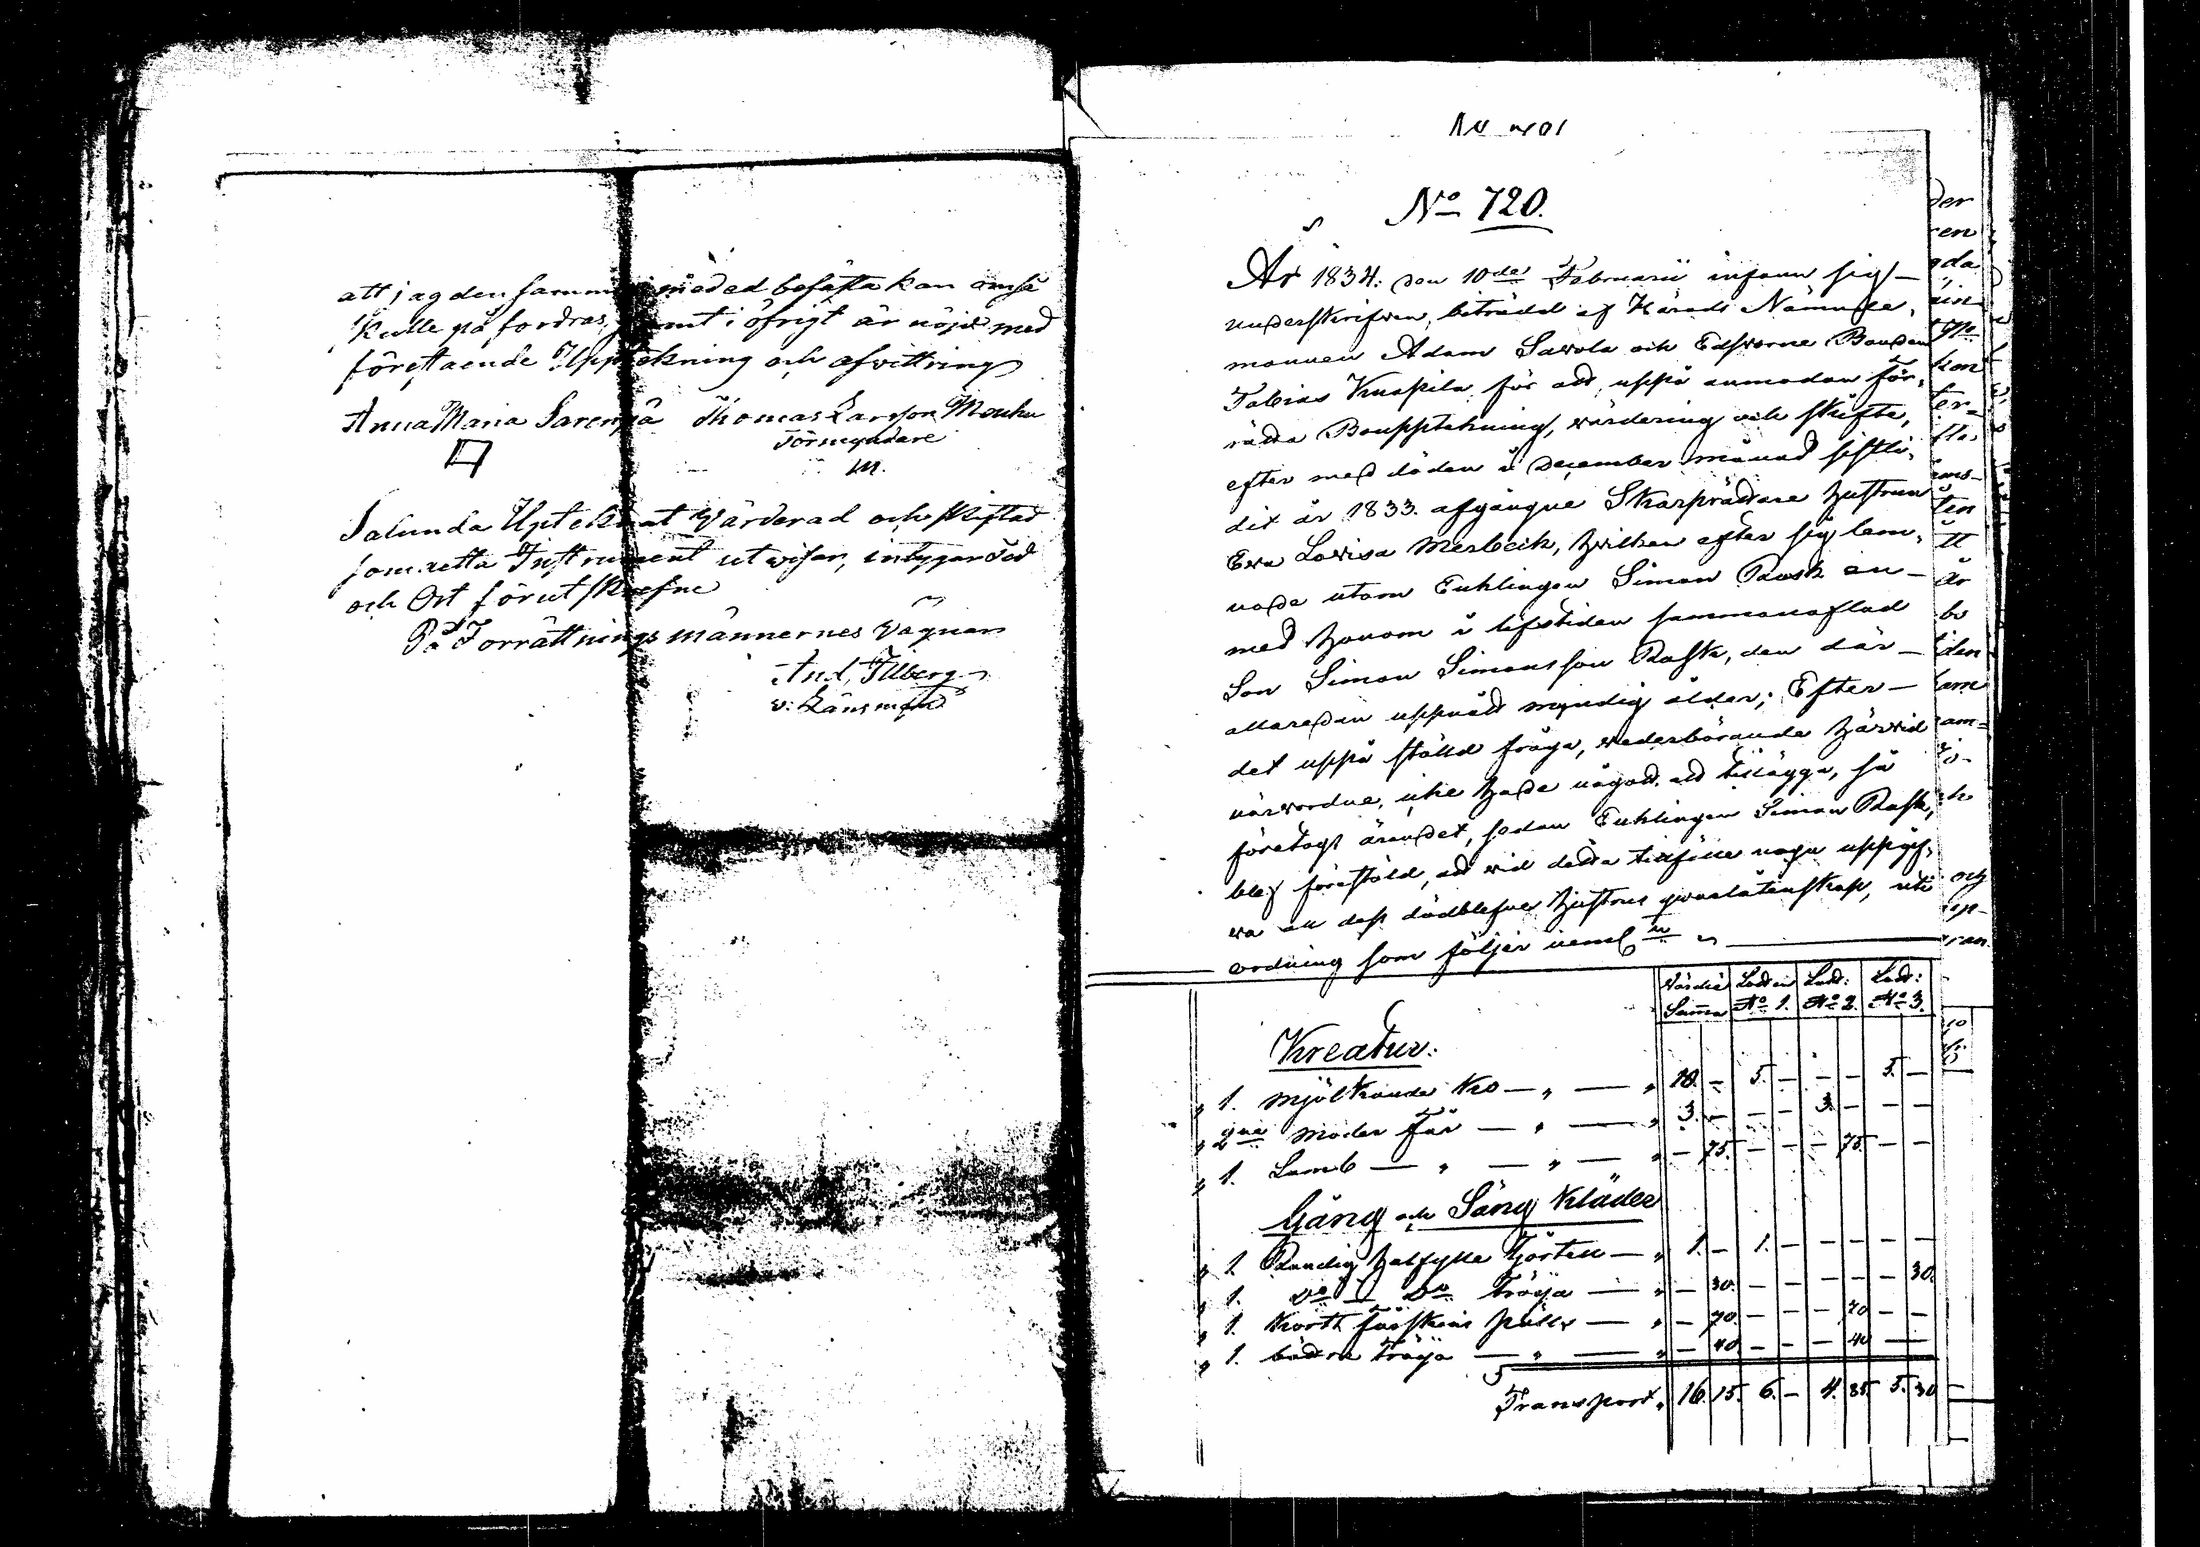 att jag den samma med ed besästa kan om så
skulle på fordras, samt i öfrigt är nöjd med
förestaende Uppteckning och afvittring
Anna Maria Sarenpä Thomas Larsson
Förmyndare
Salunda Uptecknat Värderad och skiftad
som detta Instrument utvisar, intygar Tid
och Ort förutskrefne
På Förrättnings männernes vägnar
And. Ilberg
v: Länsman
No 720.
År 1834. den 10de Februarii infann sig
undersktrifven, biträdd af Härads Nämnde-
mannen Adam Savola och Edsvorne Bonden
Tobias Knapila för att, uppå anmodan för-
rätta Bouppteckning, värdering och skifte,
efter med döden i December månad sistli-
dit år 1833. afgångne Skarprättare hustrun
Eva Lovisa Merbeck, hvilken efter sig lem-
nade utom Enklingen Simon Rask en
med honom i lifstiden sammanaflad
Son Simon Simonsson Rask, den där
allaredan uppnått myndig ålder; Efter
det uppå ställd fråga, vederbörande härvid
närvordne, icke hade något att tillägga, så
företogs ärendet, sedan Enklingen Simon Rask,
blef föreställd, att vid detta tillfälle noga uppgif-
va all dess dödblefne hustrus qvarlåtenskap, uti
ordning som följer neml:n
Värdie Lotten Lott: Lott:
Summa No 1. No 2. No 3.
Kreatur.
" 1. Mjölkande Ko — " — " 10. — 5. — — — 5. —
" 2ne Moder Får — " — " 3. — — — 3. — — —
" 1. Lamb — " — " — " — 75. — — — 75. — —
Gång och Säng Kläder
" 1 Randig halfylle kjortell — " 1. — 1. — — — — —
" 1. Do — Do Tröja — " — 30. — — — — — 30.
" 1. Kortt fårskins päls — " — 70. — — — 70 — —
" 1. bättre Tröja — " — " — 40. — — — 40 — —
Transport. 16. 15. 6. — 4. 85. 5. 30